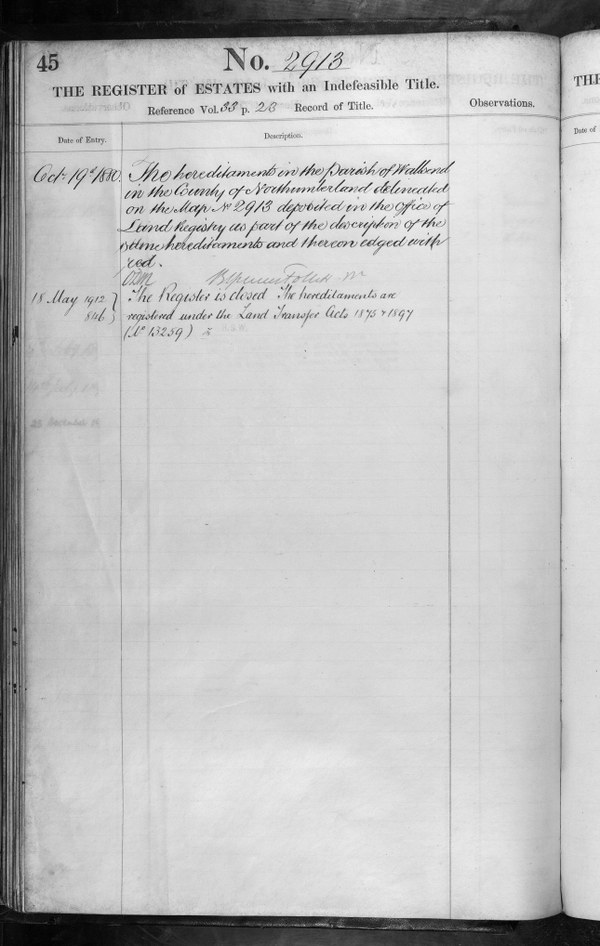 45
No. 2913
THE REGISTER of ESTATES with an Indefeasible Title.
Reference Vol. 33 p. 23 Record of Title.
Observations.
THE
Date of Entry.
Description.
Date of
Oct. 19th 1880.
The hereditaments in the Parish of Wallsend
in the County of Northumberland delineated
on the Map No 2913 deposited in the Office of
Land Registry as part of the description of the
same hereditaments and thereon edged with
red.
18 May 1912
846
The Register is closed The hereditaments are
registered under the Land Transfer Acts 1875 & 1897
(No 13259)